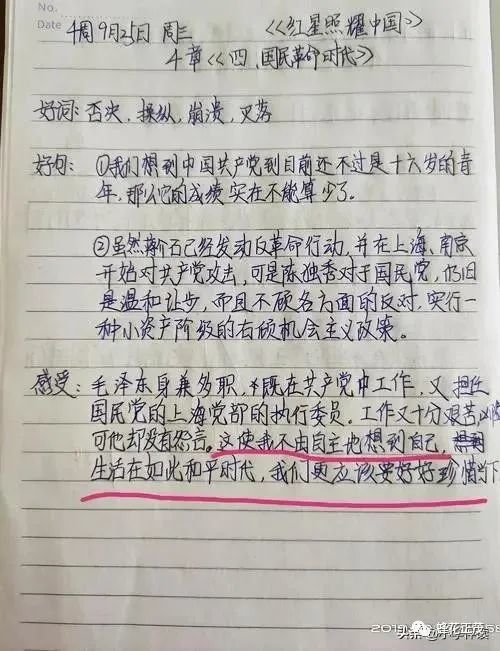 No.
Date
4周9月25日 周三 《红星照耀中国》
4章《四.国民革命时代》
好词: 否决, 操纵, 崩溃, 没落
好句: ①我们想到中国共产党到目前还不过是十六岁的青
年,那么它的成绩实在不能算少了。
②虽然蒋介石已经发动反革命行动,并在上海、南京
开始对共产党攻击,可是陈独秀对于国民党,仍旧
是温和让步,而且不顾各方面的反对,实行一
种小资产阶级的右倾机会主义政策。
感受: 毛泽东身兼多职,既在共产党中工作,又担任
国民党的上海党部的执行委员。工作又十分艰苦
可他却没有怨言。这使我不由自主地想到自己,
生活在如此和平时代,我们更应该要好好珍惜当下
蜂花正茂